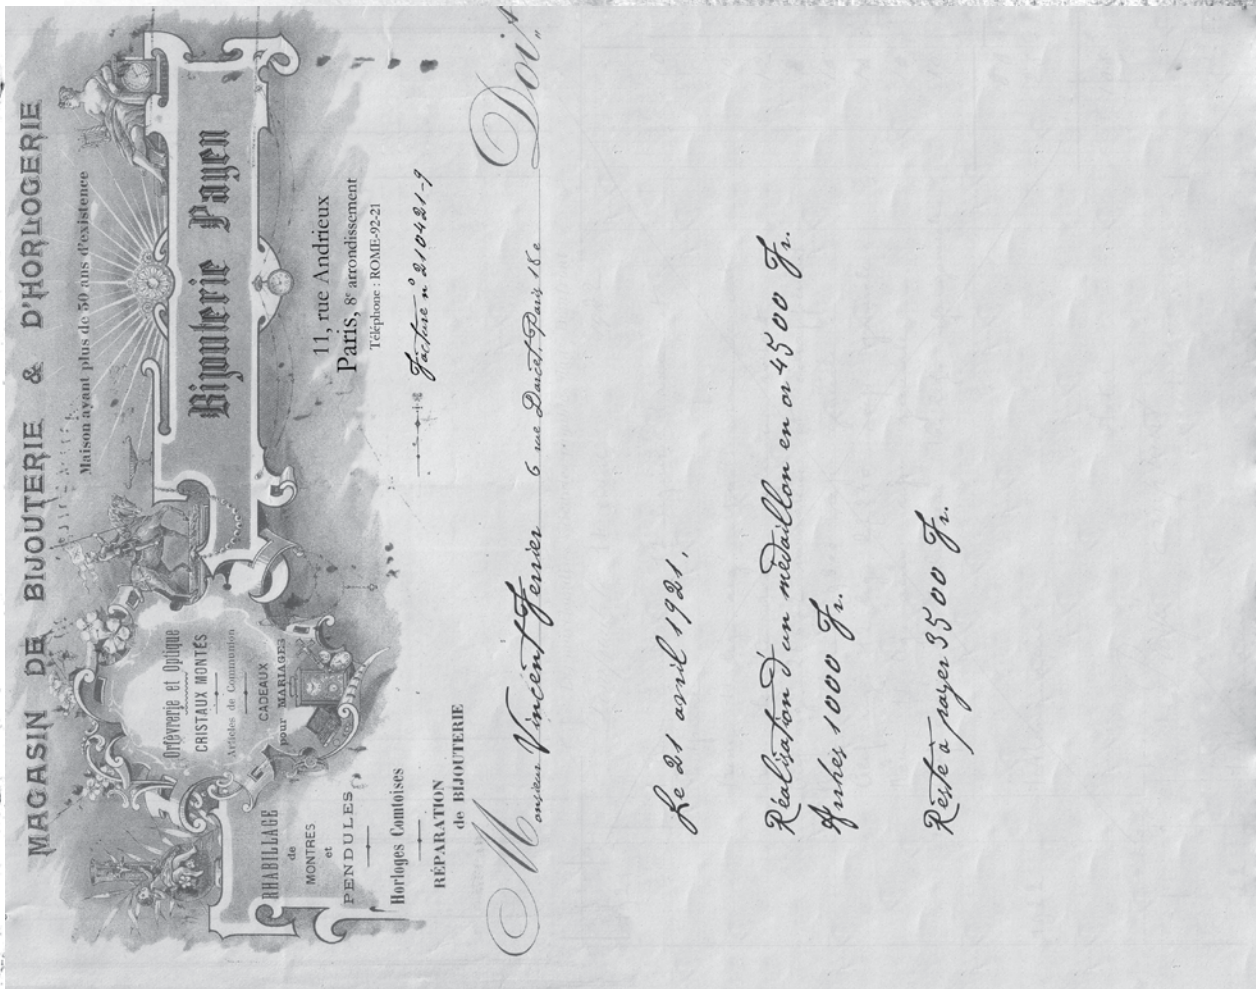 MAGASIN DE BIJOUTERIE & D'HORLOGERIE
Maison ayant plus de 50 ans d'existence
Bijouterie Payen
Orfèvrerie et Optique
CRISTAUX MONTÉS
Articles de Communion
CADEAUX
pour MARIAGES
RHABILLAGE
de
MONTRES
et
PENDULES
Horloges Comtoises
RÉPARATION
de BIJOUTERIE
11, rue Andrieux
Paris, 8e arrondissement
Téléphone : ROME-92-21
Facture n° 210421-9
Monsieur Vincent Ferrier 6 rue Darcet. Paris 18e Doit
Le 21 avril 1921,
Réalisation d'un médaillon en or 4500 Fr.
Arrhes 1000 Fr.
Reste à payer 3500 Fr.